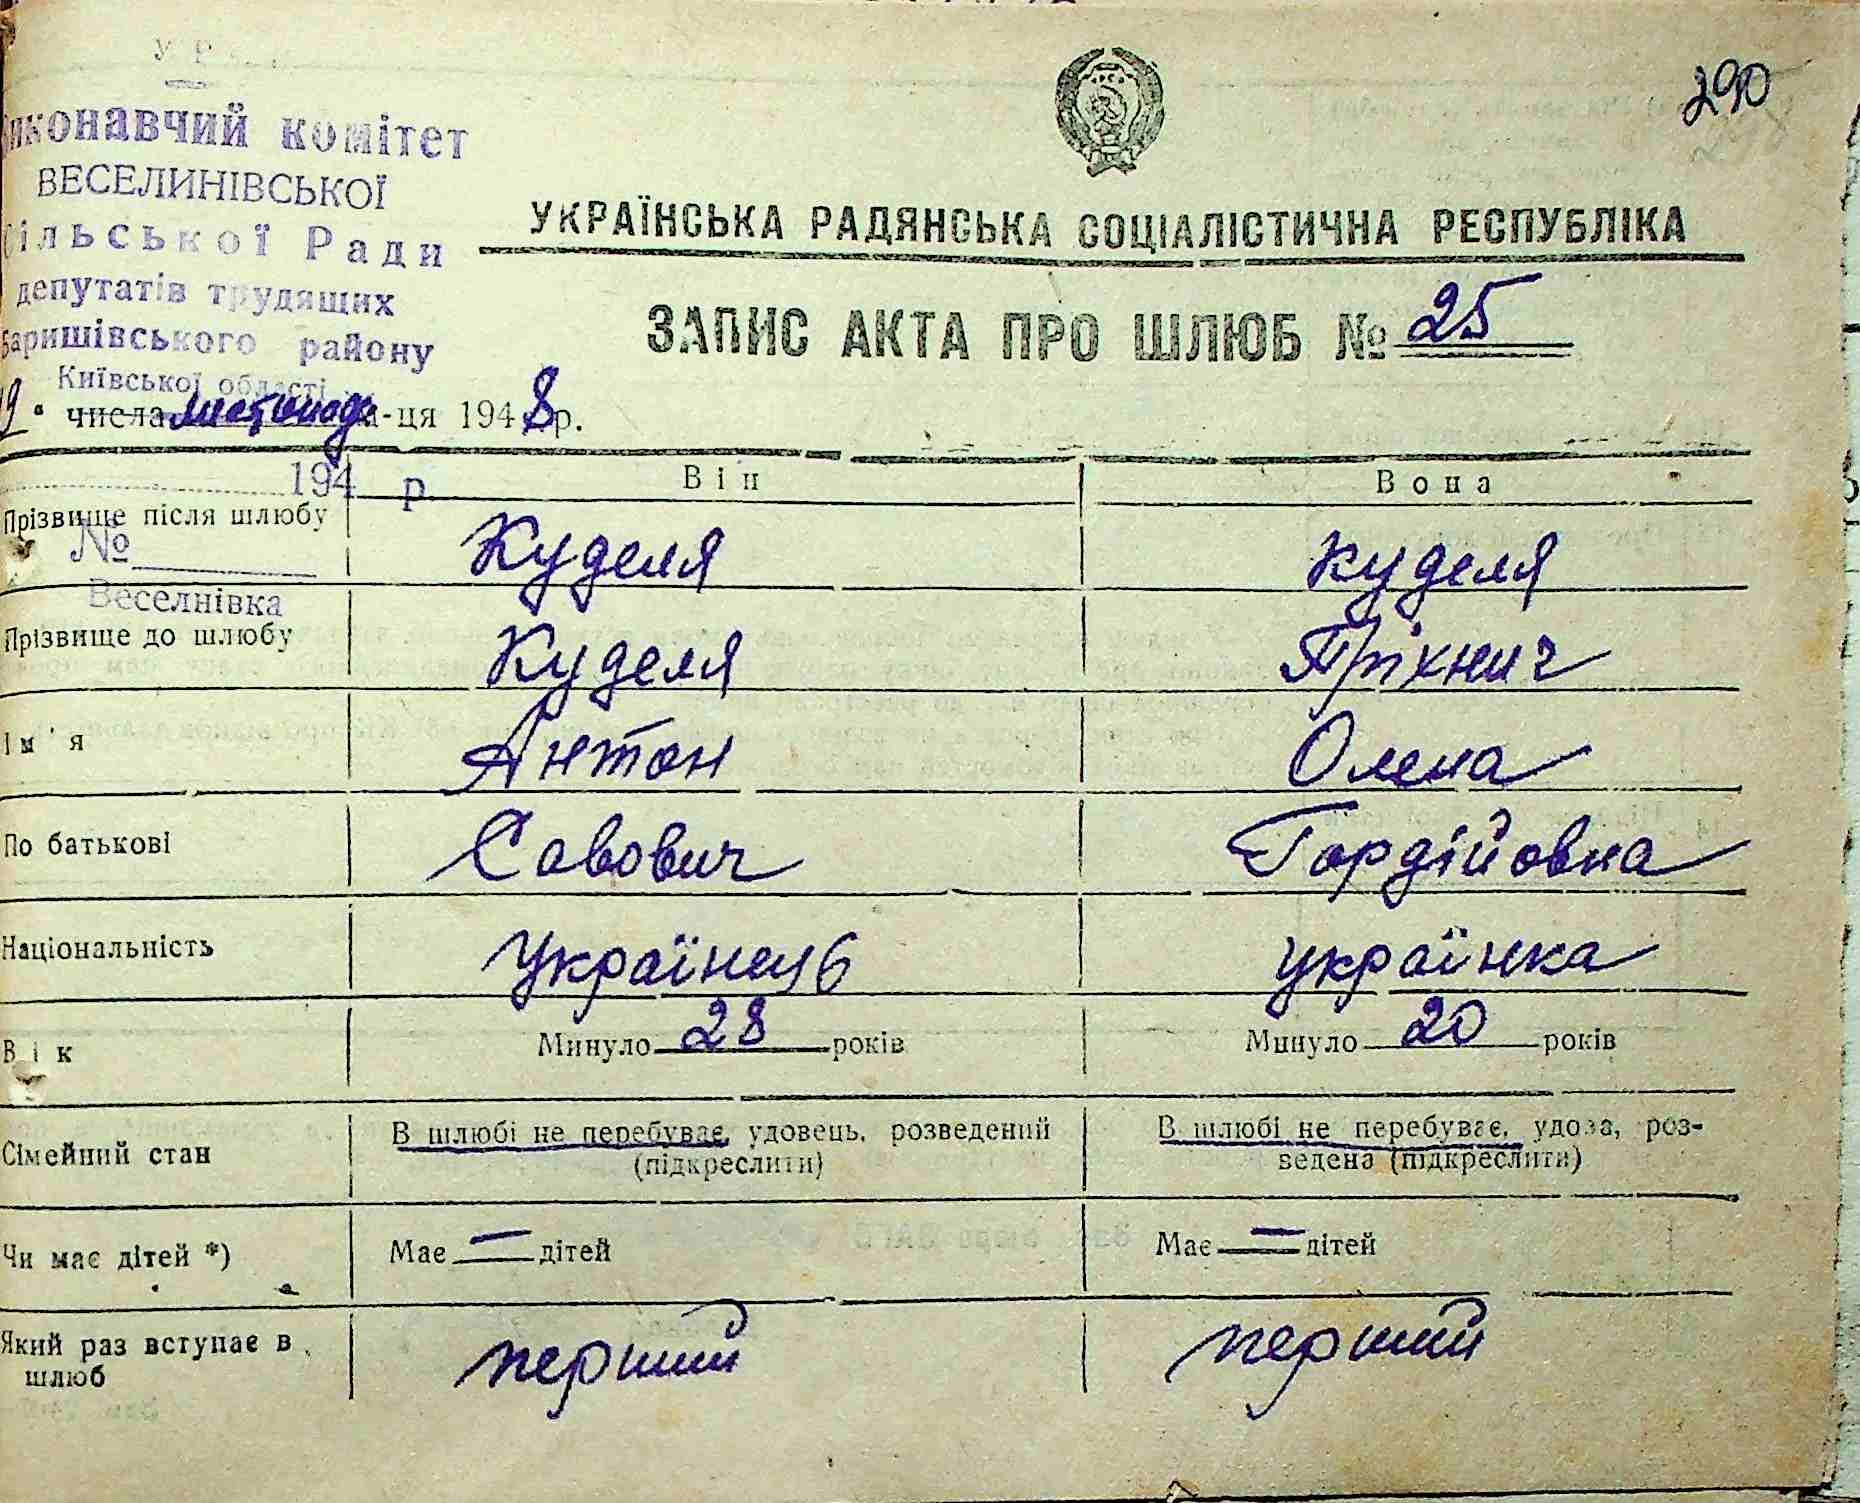 У Р
290
298
Виконавчий комітет
ВЕСЕЛИНІВСЬКОЇ
Сільської Ради
депутатів трудящих
Баришівського району
Київської області
УКРАЇНСЬКА РАДЯНСЬКА СОЦІАЛІСТИЧНА РЕСПУБЛІКА
ЗАПИС АКТА ПРО ШЛЮБ № 25
числа листопада-ця 1948 р.
194 р
№
Веселнівка
Він Вона
Прізвище після шлюбу Куделя Куделя
Прізвище до шлюбу Куделя
Ім'я Антон Олена
По батькові Савович Гордійовна
Національність Українець українка
Вік Минуло 28 років Минуло 20 років
Сімейний стан В шлюбі не перебуває, удовець, розведений (підкреслити) В шлюбі не перебуває, удова, роз-
ведена (підкреслити)
Чи має дітей *) Має — дітей Має — дітей
Який раз вступає в шлюб перший перший